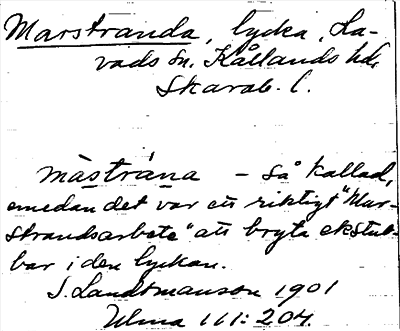 Marstranda, lycka, La-
vads sn. Kållands hd.
Skarab. l.
màstrána – så kallad,
emedan det var ett riktigt "Mar-
strandsarbete" att bryta ekstub-
bar i den lyckan.
S. Landtmanson 1901
Ulma 111: 204.